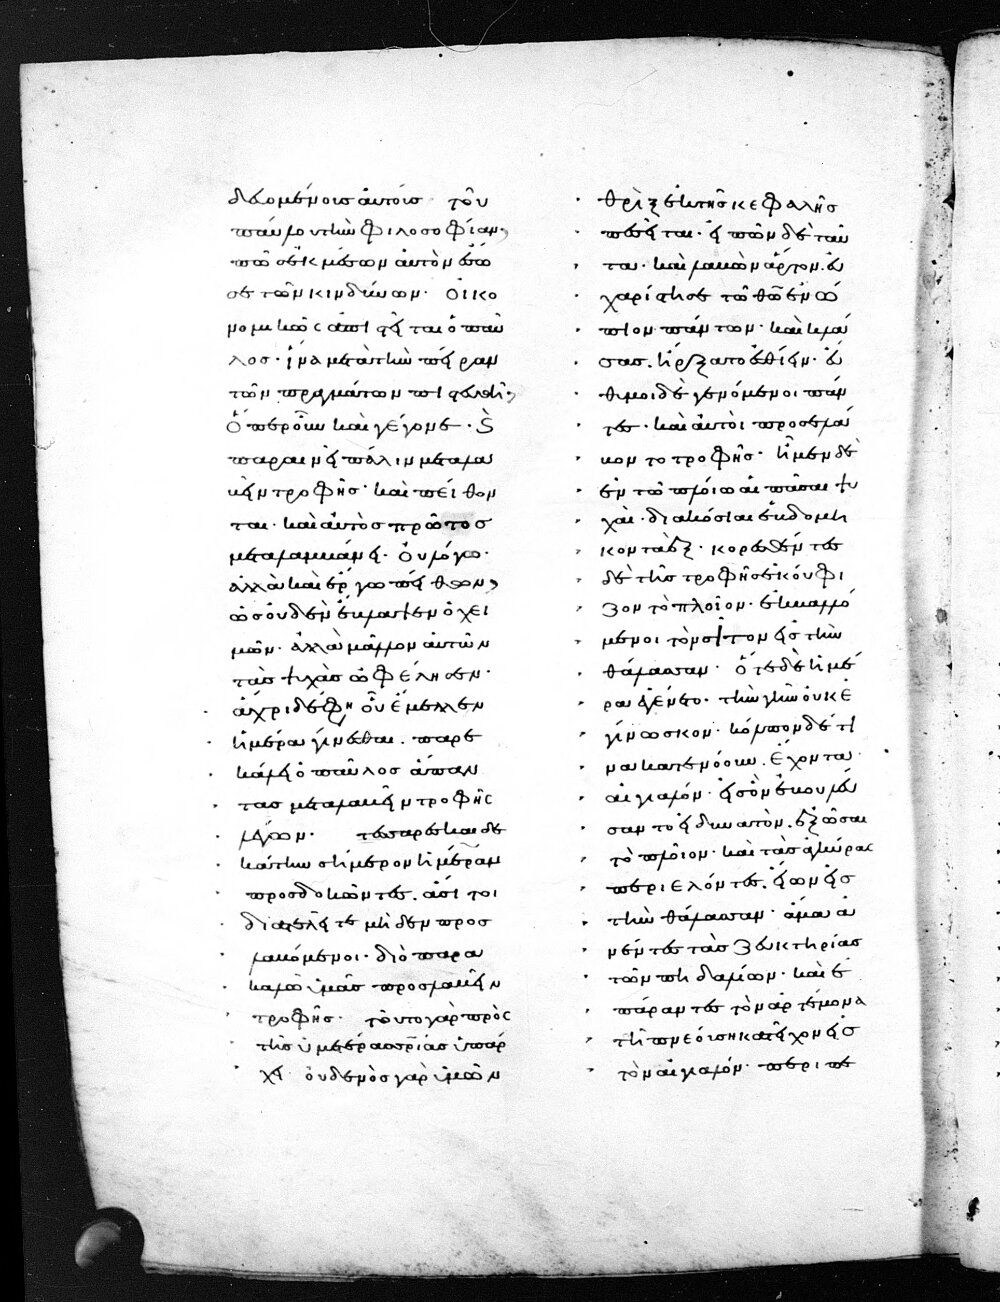 δεομένοις αὐτοῖς· τοῦ
παύλου τὴν φιλοσοφίαν,
πῶς ἐκ μέσων αὐτὸν ἔσω
σε τῶν κινδύνων· οἰκο
νομικῶς ἀπιστεῖται ὁ παῦ
λος· ἵνα μετὰ τὴν πεῖραν
τῶν πραγμάτων πιστευθῆ,
ὅπερ οὖν καὶ γέγονε·
παραινεῖ πάλιν μεταλα
βεῖν τροφῆς· καὶ πείθον
ται· καὶ αὐτὸς πρῶτος
μεταλαμβάνει· οὐ λόγω·
ἀλλὰ καὶ ἔργω πείθων,
ὡς οὐδὲν ἔβλαψεν ὁ χει
μῶν· ἀλλὰ μᾶλλον αὐτῶν
τὰς ψυχὰς ὠφέλησεν·
ἄχρι δὲ οὗ ἔμελλεν
ἡμέρα γίνεσθαι· παρε
κάλει ὁ παῦλος ἅπαν
τας μεταλαβεῖν τροφῆς
λέγων· τεσσαρεσκαιδε
κάτην σήμερον ἡμέραν
προσδοκῶντες· ἄσιτοι
διατελεῖτε μηδὲν προσ
λαβόμενοι· διὸ παρα
καλῶ ὑμᾶς προσλαβεῖν
τροφῆς· τοῦτο γὰρ πρὸς
τῆς ὑμετέρας σρίας ὑπάρ
χει· οὐδενὸς γὰρ ὑμῶν
θρὶξ ἐκ τῆς κεφαλῆς
πεσεῖται· εἰπὼν δὲ ταῦ
τα· καὶ λαβὼν ἄρτον· εὐ
χαρίστησε τῶ θῶ ἐνώ
πιον πάντων· καὶ κλά
σας· ἤρξατο ἐσθίειν· εὔ
θυμοι δὲ γενόμενοι πάν
τες· καὶ αὐτοὶ προσελά
βοντο τροφῆς· ἦμεν δὲ
ἐν τῶ πλοίω αἱ πᾶσαι ψυ
χαὶ· διακόσιαι ἑβδομή
κοντα ἕξ· κορεσθέντες
δὲ τῆς τροφῆς ἐκούφι
ζον τὸ πλοῖον· ἐκβαλλό
μενοι τὸν σῖτον εἰς τὴν
θάλασσαν· ὅτε δὲ ἡμέ
ρα ἐγένετο· τὴν γῆν οὐκ ἐ
γίνωσκον· κόλπον δέ τι
να κατενόουν· ἔχοντα
αἰγιαλόν· εἰς ὃν ἐβουλεύ
σαντο εἰ δυνατὸν· ἐξῶσαι
τὸ πλοῖον· καὶ τὰς ἀγκύρας
περιελόντες· εἴων εἰς
τὴν θάλασσαν· ἅμα ἀ
νέντες τὰς ζευκτηρίας
τῶν πηδαλίων· καὶ ἐ
πάραντες τὸν ἀρτέμονα
τῆ πνεούση κατεῖχον εἰς
τὸν αἰγιαλόν· περιπε